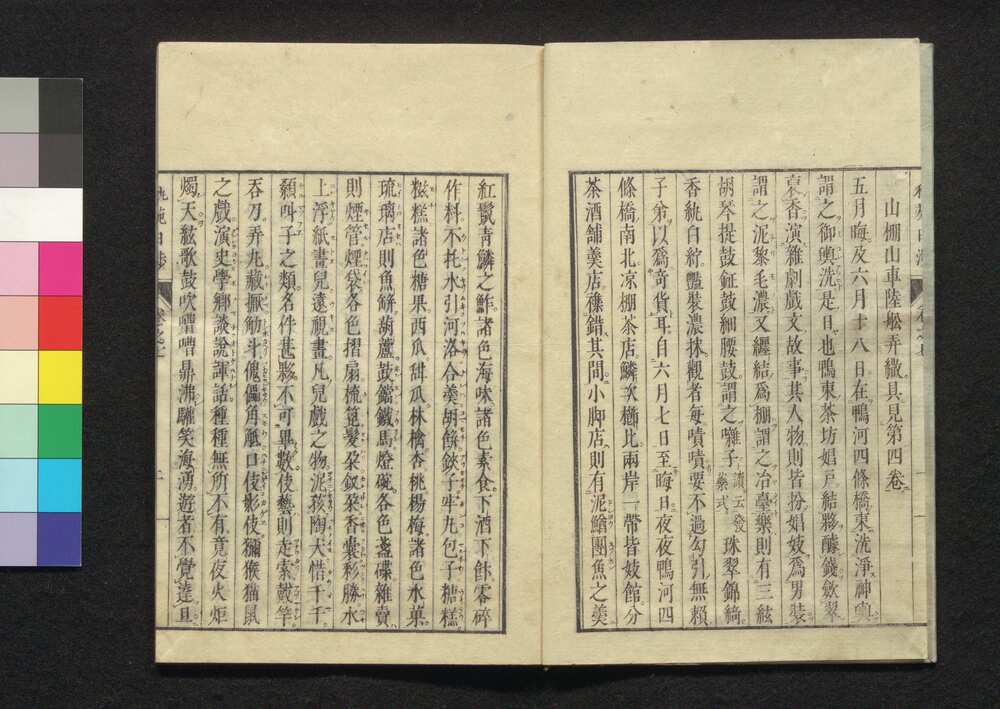 山棚山車陸舩弄繖具見第四卷
五月晦及六月十八日在鴨河四條橋東洗淨神輿
謂之御輿洗是日也鴨東茶坊娼戸結夥醵錢斂翠
裒香演雜劇戲文故事其人物則皆扮娼妓爲男裝
謂之泥黎毛濃又纒結爲棚謂之冶臺樂則有三絃
胡琴提鼓鉦鼓細腰鼓謂之囃子 珠翠錦綺
香紈白紵豔裝濃抹觀者每嘖嘖要不過勾引無賴
子弟以爲奇貨耳自六月七日至晦日夜夜鴨河四
條橋南北凉棚茶店鱗次櫛比兩岸一帶皆妓館分
茶酒舖羹店襍錯其間小脚店則有泥鰌團魚之羹
紅鬣青鱗之鮓諸色海味諸色素食下酒下飰零碎
作料不托水引河洛合羹胡餅餃子牢九包子糖糕
糍糕諸色糖果西瓜甜瓜林檎杏桃楊梅諸色水菓
琉璃店則魚缾葫蘆鼓鐺鐵馬燈碗各色盞碟雜賣
則煙管煙袋各色摺扇梳篦髮朶釵朶香囊彩勝水
上浮紙畫兒遠視畫凡兒戲之物泥孩陶犬惜千千
顙叫子之類名件甚夥不可畢數伎藝則走索戴竿
吞刀弄丸藏擫觔斗傀儡角觝口伎影伎獼猴猫鼠
之戲演史學鄉談說諢話種種無所不有竟夜火炬
燭天絃歌鼓吹嘈嘈鼎沸驩笑海湧遊者不覺達旦